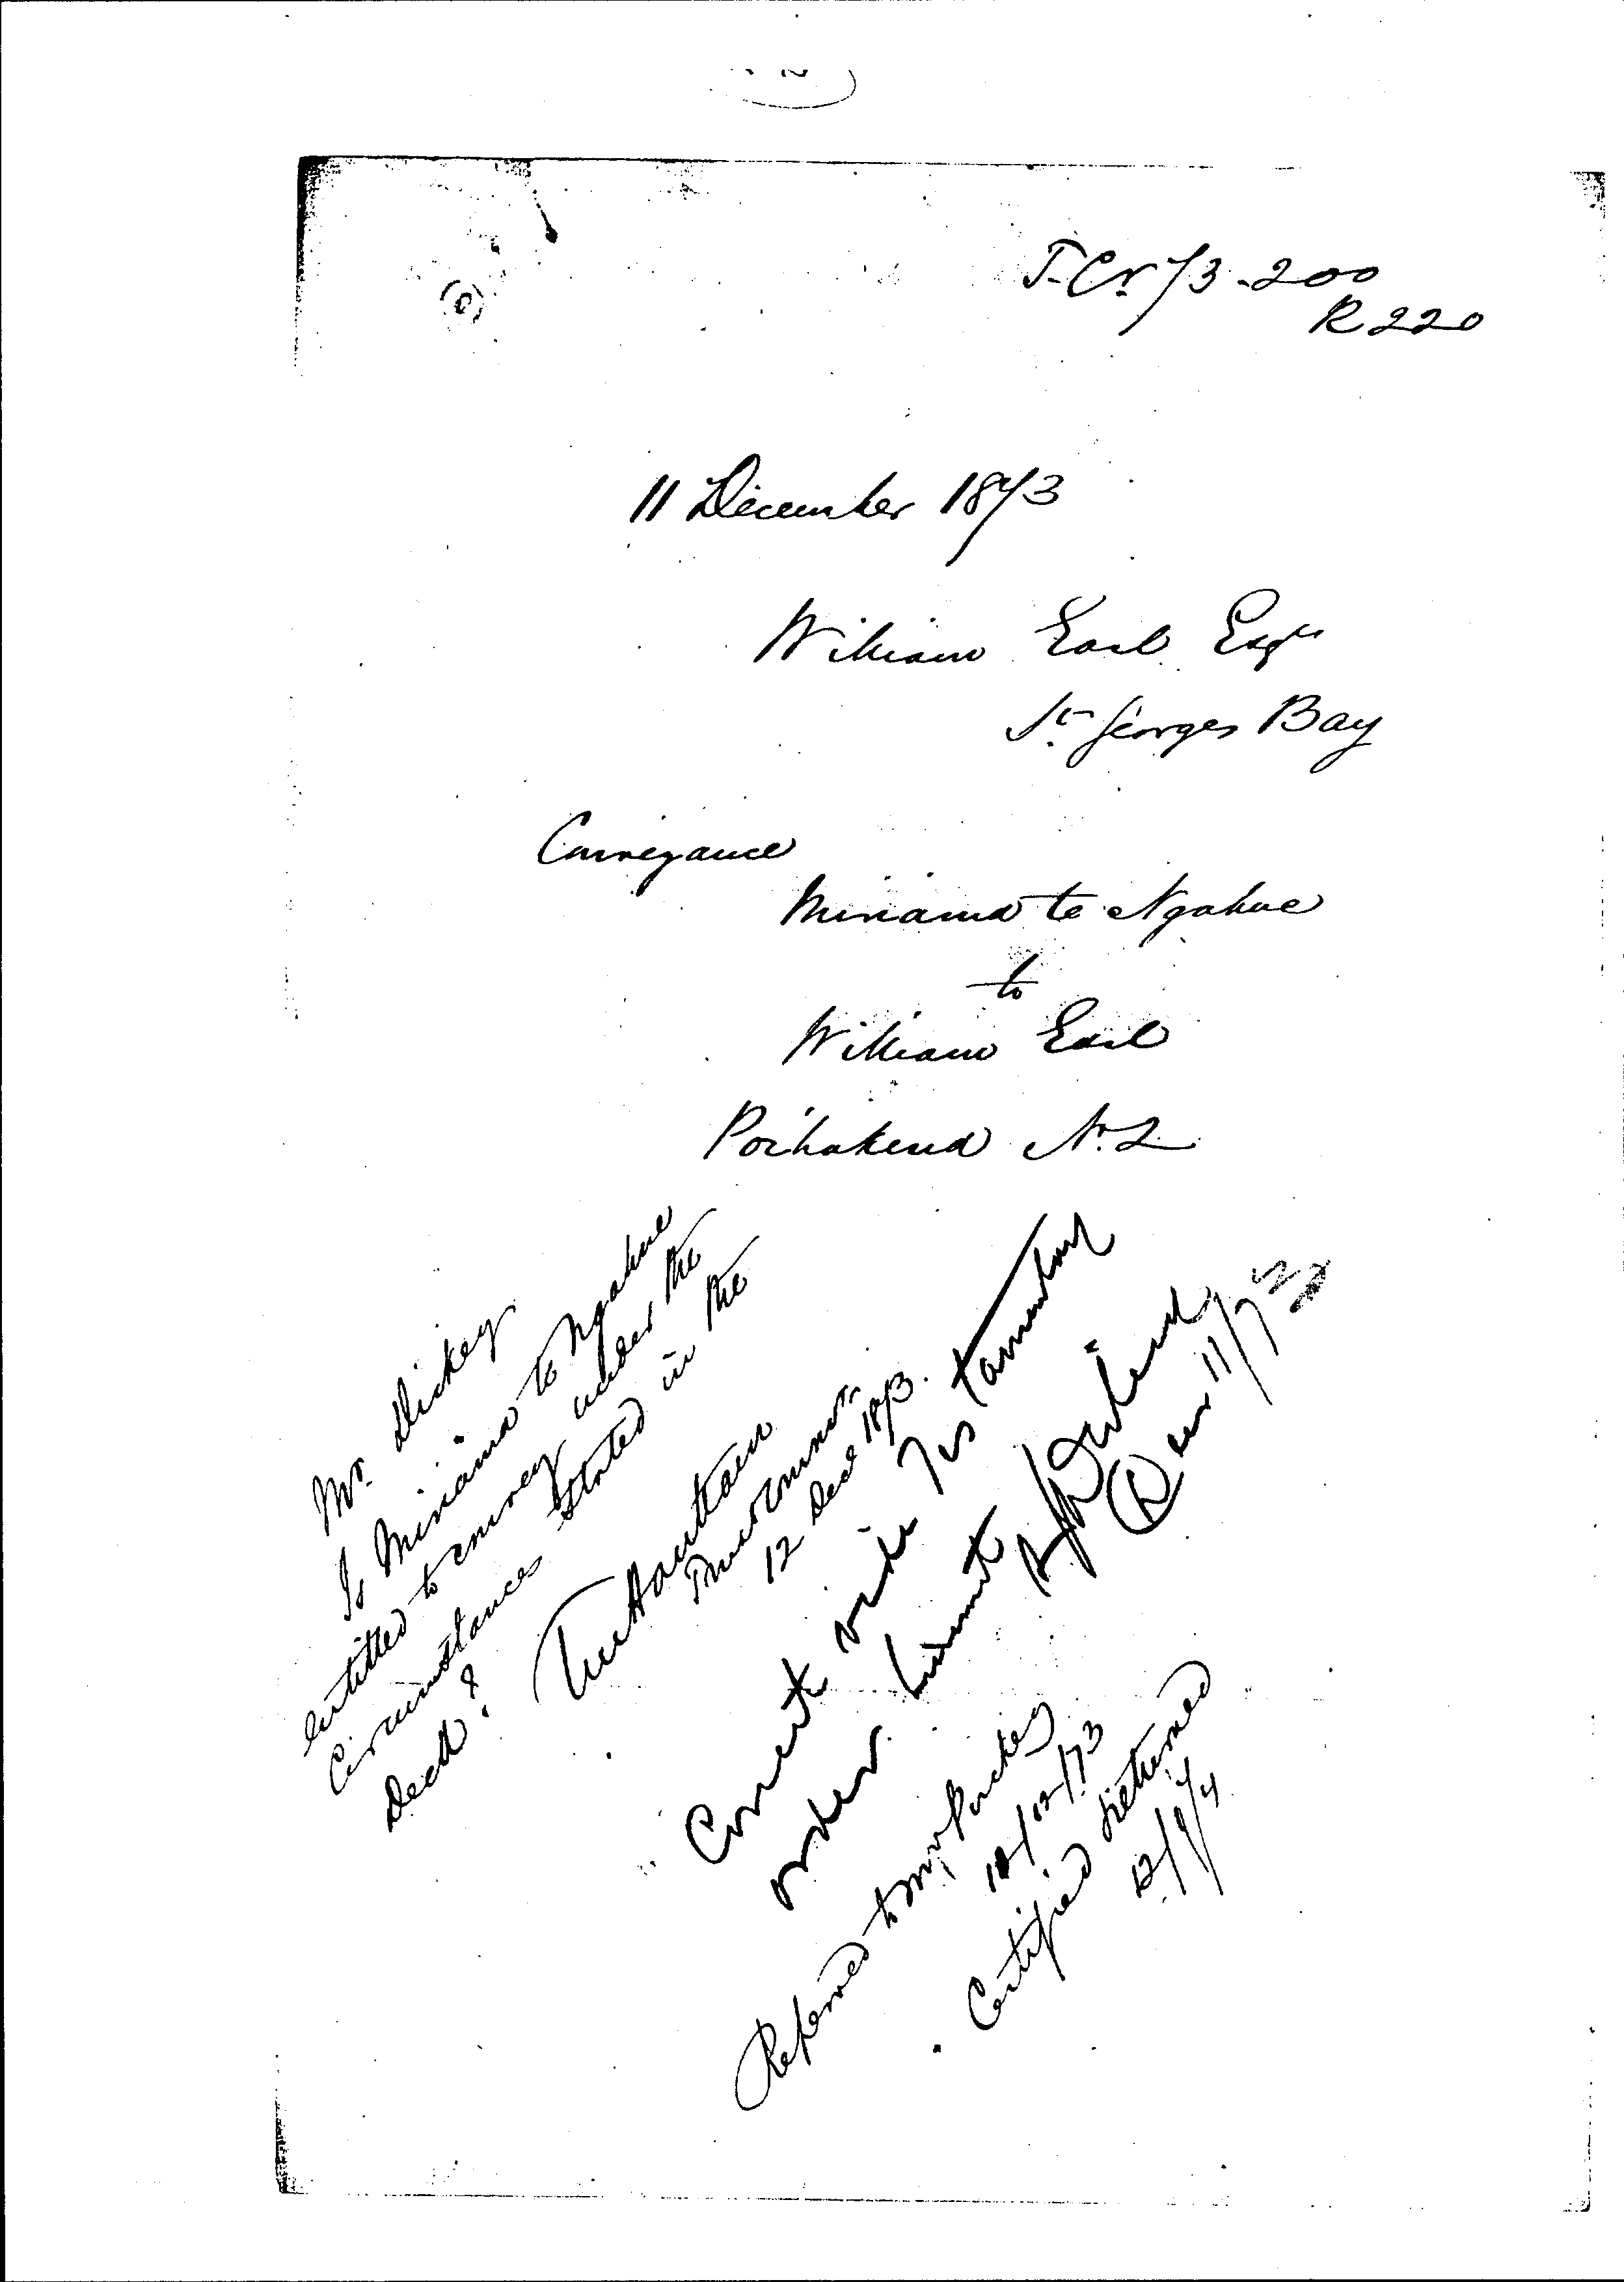 T. Cr. 73-200
R 220
11 December 1873
William Earl Esqre
St Georges Bay
Conveyance
Miriama te Ngahue
to
William Earl
Poihakena No. 2
Mr. Dickey
Is Miriama te Ngahue
entitled to convey under the
Circumstances stated in the
Deed?
12 Decr 1873.
Correct vide Testamentary
order
11/73
Referred to Mr
12/73
Certified & returned
12/1/74